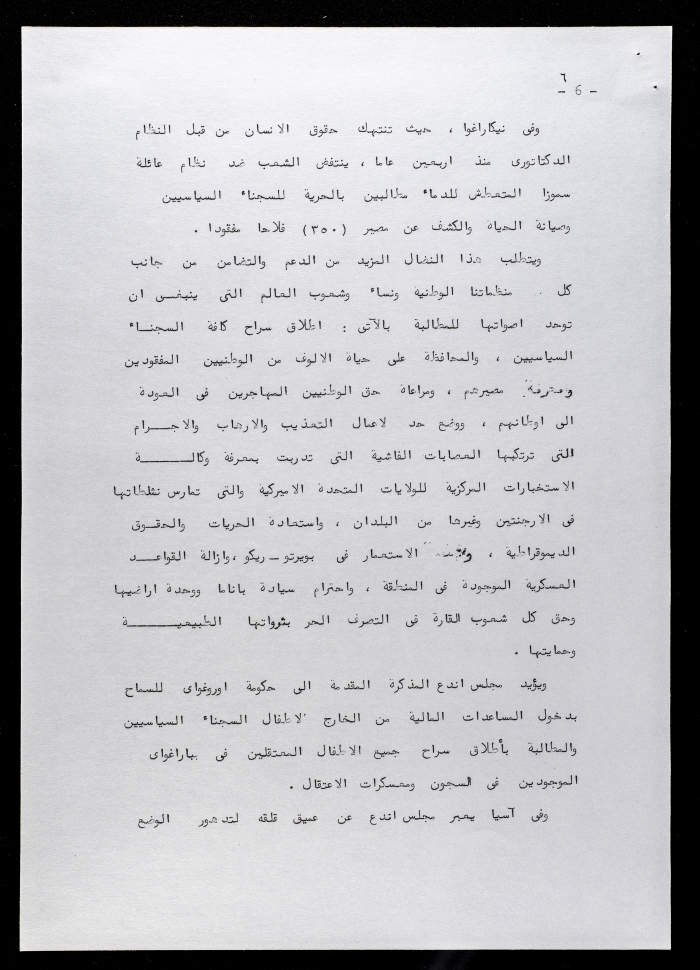 ٦
- 6 -
وفى نيكاراغوا ، حيث تنتهك حقوق الانسان من قبل النظام
الدكتاتورى منذ اربعين عاما ، ينتفض الشعب ضد نظام عائلة
سموزا المتعطش للدماء مطالبين بالحرية للسجناء السياسيين
وصيانة الحياة والكشف عن مصير (٣٥٠) فلاحا مفقودا .
ويتطلب هذا النضال المزيد من الدعم والتضامن من جانب
كل منظماتنا الوطنية ونساء وشعوب العالم التى ينبغى ان
توحد اصواتها للمطالبة بالآتى : اطلاق سراح كافة السجنـاء
السياسيين ، والمحافظة على حياة الالوف من الوطنيين المفقودين
ومعرفة مصيرهم ، ومراعاة حق الوطنيين المهاجرين فى العودة
الى اوطانهم ، ووضع حد لاعمال التعذيب والارهاب والاجـــرام
التى ترتكبها العصابات الفاشية التى تدربت بمعرفة وكالـــــة
الاستخبارات المركزية للولايات المتحدة الاميركية والتى تمارس نشاطاتها
فى الارجنتين وغيرها من البلدان ، واستعادة الحريات والحقـوق
الديموقراطية ، الاستعمار فى بويرتو ـ ريكو ، وازالة القواعـد
العسكرية الموجودة فى المنطقة ، واحترام سيادة باناما ووحدة اراضيها
وحق كل شعوب القارة فى التصرف الحر بثرواتها الطبيعيـــــة
وحمايتها .
ويؤيد مجلس اندع المذكرة المقدمة الى حكومة اوروغواى للسماح
بدخول المساعدات المالية من الخارج لاطفال السجناء السياسيين
والمطالبة بأطلاق سراح جميع الاطفال المعتقلين فى باراغواى
الموجودين فى السجون ومعسكرات الاعتقال .
وفى آسيا يعبر مجلس اندع عن عميق قلقه لتدهور الوضع